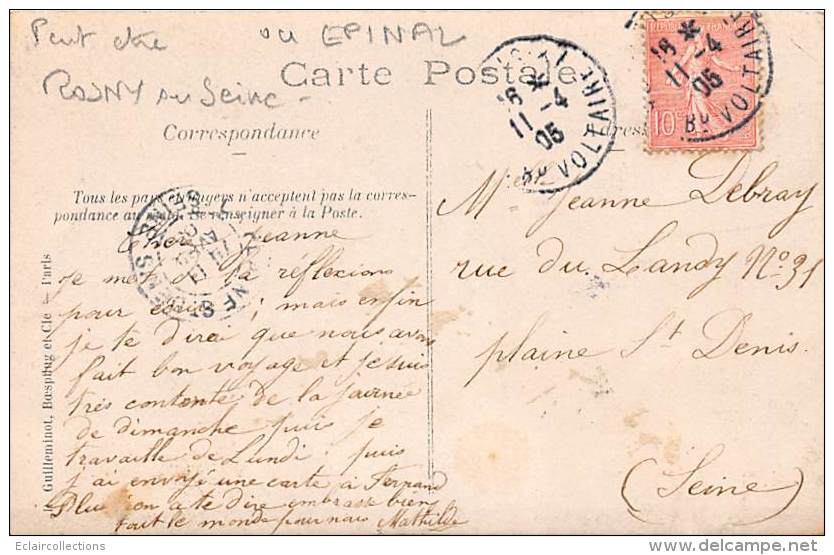 Peut etre ou EPINAL
ROSNY sur Seine -
Carte Postale
Correspondance
Adresse
Tous les pays étrangers n'acceptent pas la corres-
pondance au se renseigner à la Poste.
J. Guilleminot, Bœspflug et Cie - Paris
10c
11 - 4
05
Bd VOLTAIRE
11 - 4
05
Bd VOLTAIRE
Chère Jeanne
je met de la réflexions
pour ; mais enfin
je te dirai que nous avons
fait bon voyage et je suis
très contente de la journée
de dimanche puis je
travaille de Lundi puis
j'ai envoyé une carte à Fernand
Plus rien a te dire embrasse bien
tout le monde pour nous Mathilde
Melle Jeanne Debray
rue du Landy No 31
plaine St Denis.
(Seine)
Eclaircollections